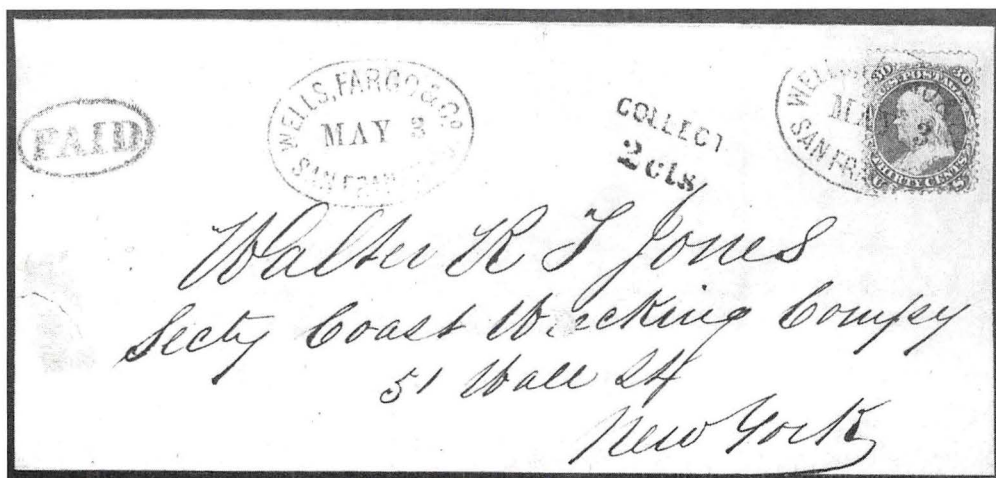 PAID
WELLS, FARGO & CO
MAY 3
SAN FRAN
COLLECT
2 cts
WELLS
MAY 3
SAN FRA
30 U.S. POSTAGE 30
THIRTY CENTS
U S
Walter R T Jones
Secty Coast Wrecking Compy
51 Wall St
New York